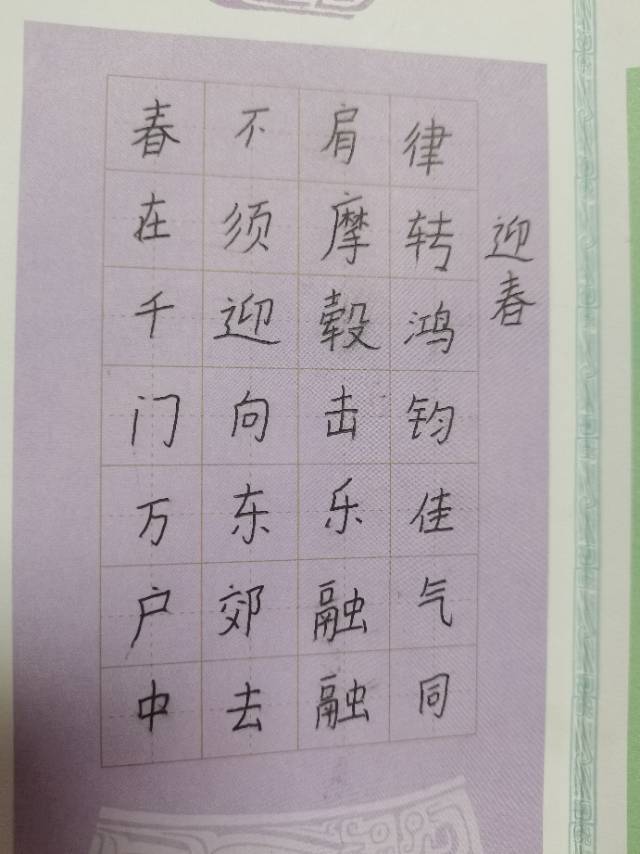 迎春
律转鸿钧佳气同
肩摩毂击乐融融
不须迎向东郊去
春在千门万户中